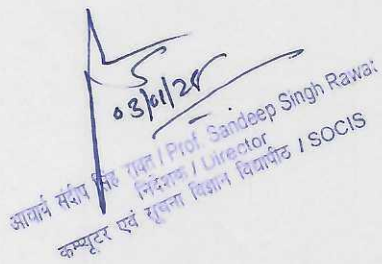 03/01/25
आचार्य संदीप सिंह रावत / Prof. Sandeep Singh Rawat
निदेशक / Director
कम्प्यूटर एवं सूचना विज्ञान विद्यापीठ / SOCIS